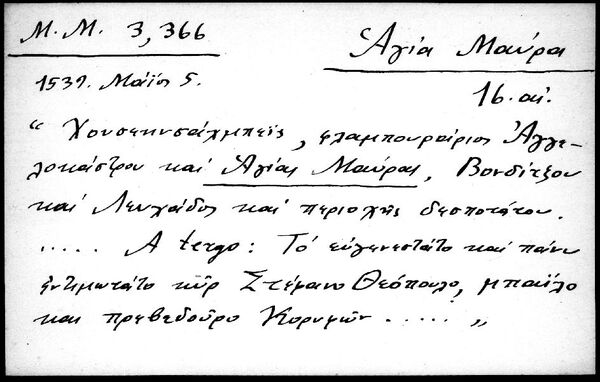 Μ.Μ. 3,366
Ἁγία Μαύρα
1539. Μάϊος 5.
16. αἰ.
“ Χουσεηνσάχμπεϊς, φλαμπουριάριος Ἀγγε-
λοκάστρου καί Ἁγίας Μαύρας, Βονδίτζου
καί Λευκάδος καί περιοχῆς δεσποτάτου.
..... A tergo: Τό εὐγενεστάτο καί πάνυ
ἐντιμωτάτο κῦρ Στέφανο Θεόπουλο, μπαΐλο
και πρεβεδοῦρο Κορυφῶν ..... „